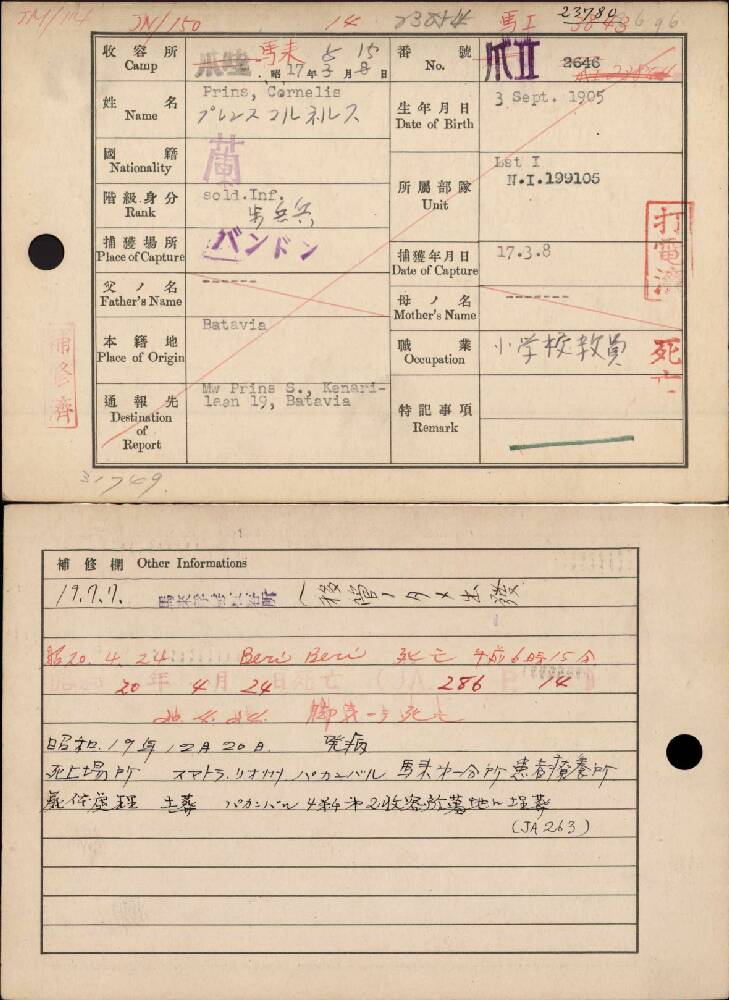 JM/141 JN/150 14 23254 馬I 23780
3643 696
收容所 Camp 爪哇 馬来 昭17年 5月15日 3 8
番號 No. 爪II 2646
姓名 Name Prins, Cornelis
プレンス コルネルス
生年月日 Date of Birth 3 Sept. 1905
國籍 Nationality 蘭
階級身分 Rank sold.Inf.
歩兵兵
所屬部隊 Unit Lst I
N.I.199105
捕獲場所 Place of Capture バンドン
捕獲年月日 Date of Capture 17.3.8
打電済
父ノ名 Father's Name ------
母ノ名 Mother's Name -------
本籍地 Place of Origin Batavia
職業 Occupation 小学校教員
死亡
補修濟
通報先 Destination of Report Mw Prins S., Kenari-
laan 19, Batavia
特記事項 Remark
31749
補修欄 Other Informations
19.7.7. 馬来俘虜收容所 ヘ移管ノタメ出発
昭20.4.24 Beri Beri 死亡 午前6時15分
20年4月24日死亡 (JA 286 14
20.4.24. 脚気ニテ死亡
昭和19年12月20日 発病
死亡場所 スマトラ、リオ州 パカンバル 馬来第一分所患者療養所
屍体處理 土葬 パカンバル 第2收容所墓地ニ埋葬
(JA263)